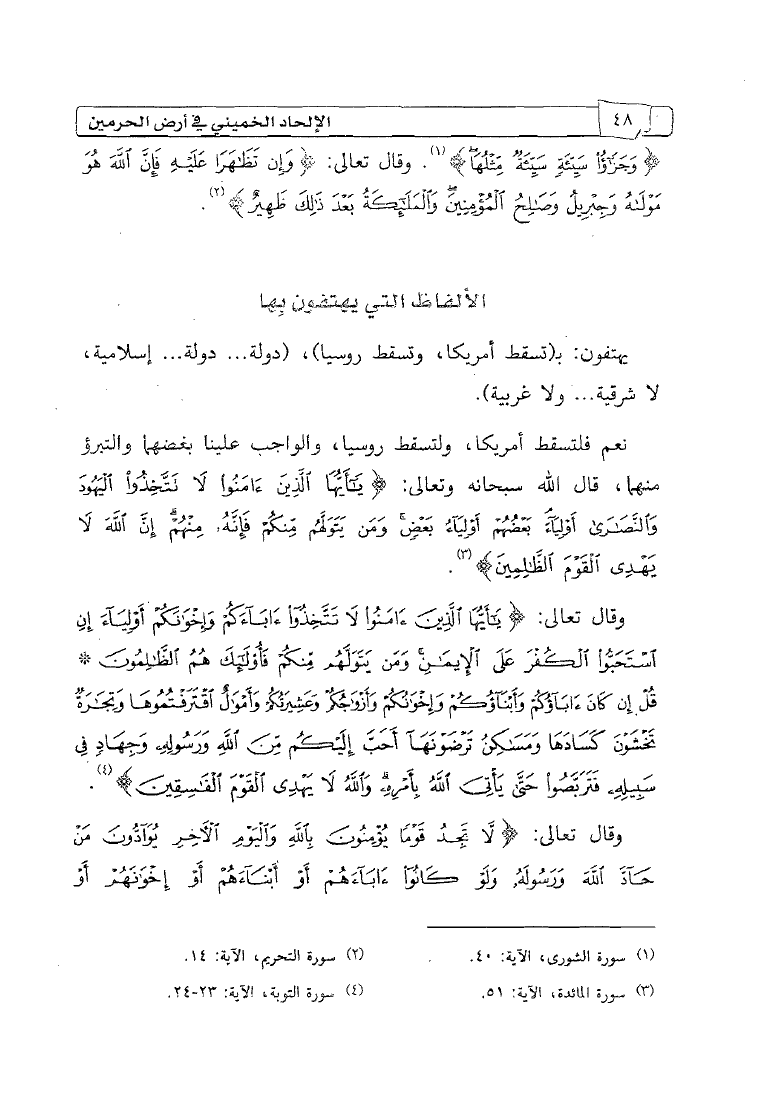 ٤٨
الإلحاد الخميني في أرض الحرمين
﴿ وَجَزَٰٓؤُا۟ سَيِّئَةٍ سَيِّئَةٌ مِّثْلُهَا ﴾(١). وقال تعالى: ﴿ وَإِن تَظَٰهَرَا عَلَيْهِ فَإِنَّ ٱللَّهَ هُوَ
مَوْلَىٰهُ وَجِبْرِيلُ وَصَٰلِحُ ٱلْمُؤْمِنِينَ وَٱلْمَلَٰٓئِكَةُ بَعْدَ ذَٰلِكَ ظَهِيرٌ ﴾(٢).
الألفاظ التي يهتفون بها
يهتفون: بـ(تسقط أمريكا، وتسقط روسيا)، (دولة... دولة... إسلامية،
لا شرقية... ولا غربية).
نعم فلتسقط أمريكا، ولتسقط روسيا، والواجب علينا بغضهما والتبرؤ
منهما، قال الله سبحانه وتعالى: ﴿ يَٰٓأَيُّهَا ٱلَّذِينَ ءَامَنُوا۟ لَا تَتَّخِذُوا۟ ٱلْيَهُودَ
وَٱلنَّصَٰرَىٰٓ أَوْلِيَآءَ بَعْضُهُمْ أَوْلِيَآءُ بَعْضٍ وَمَن يَتَوَلَّهُم مِّنكُمْ فَإِنَّهُۥ مِنْهُمْ إِنَّ ٱللَّهَ لَا
يَهْدِى ٱلْقَوْمَ ٱلظَّٰلِمِينَ ﴾(٣).
وقال تعالى: ﴿ يَٰٓأَيُّهَا ٱلَّذِينَ ءَامَنُوا۟ لَا تَتَّخِذُوٓا۟ ءَابَآءَكُمْ وَإِخْوَٰنَكُمْ أَوْلِيَآءَ إِنِ
ٱسْتَحَبُّوا۟ ٱلْكُفْرَ عَلَى ٱلْإِيمَٰنِ وَمَن يَتَوَلَّهُم مِّنكُمْ فَأُو۟لَٰٓئِكَ هُمُ ٱلظَّٰلِمُونَ *
قُلْ إِن كَانَ ءَابَآؤُكُمْ وَأَبْنَآؤُكُمْ وَإِخْوَٰنُكُمْ وَأَزْوَٰجُكُمْ وَعَشِيرَتُكُمْ وَأَمْوَٰلٌ ٱقْتَرَفْتُمُوهَا وَتِجَٰرَةٌ
تَخْشَوْنَ كَسَادَهَا وَمَسَٰكِنُ تَرْضَوْنَهَآ أَحَبَّ إِلَيْكُم مِّنَ ٱللَّهِ وَرَسُولِهِۦ وَجِهَادٍ فِى
سَبِيلِهِۦ فَتَرَبَّصُوا۟ حَتَّىٰ يَأْتِىَ ٱللَّهُ بِأَمْرِهِۦ وَٱللَّهُ لَا يَهْدِى ٱلْقَوْمَ ٱلْفَٰسِقِينَ ﴾(٤).
وقال تعالى: ﴿ لَّا تَجِدُ قَوْمًا يُؤْمِنُونَ بِٱللَّهِ وَٱلْيَوْمِ ٱلْءَاخِرِ يُوَآدُّونَ مَنْ
حَآدَّ ٱللَّهَ وَرَسُولَهُۥ وَلَوْ كَانُوٓا۟ ءَابَآءَهُمْ أَوْ أَبْنَآءَهُمْ أَوْ إِخْوَٰنَهُمْ أَوْ
(١) سورة الشورى، الآية: ٤٠.
(٢) سورة التحريم، الآية: ١٤.
(٣) سورة المائدة، الآية: ٥١.
(٤) سورة التوبة، الآية: ٢٣-٢٤.